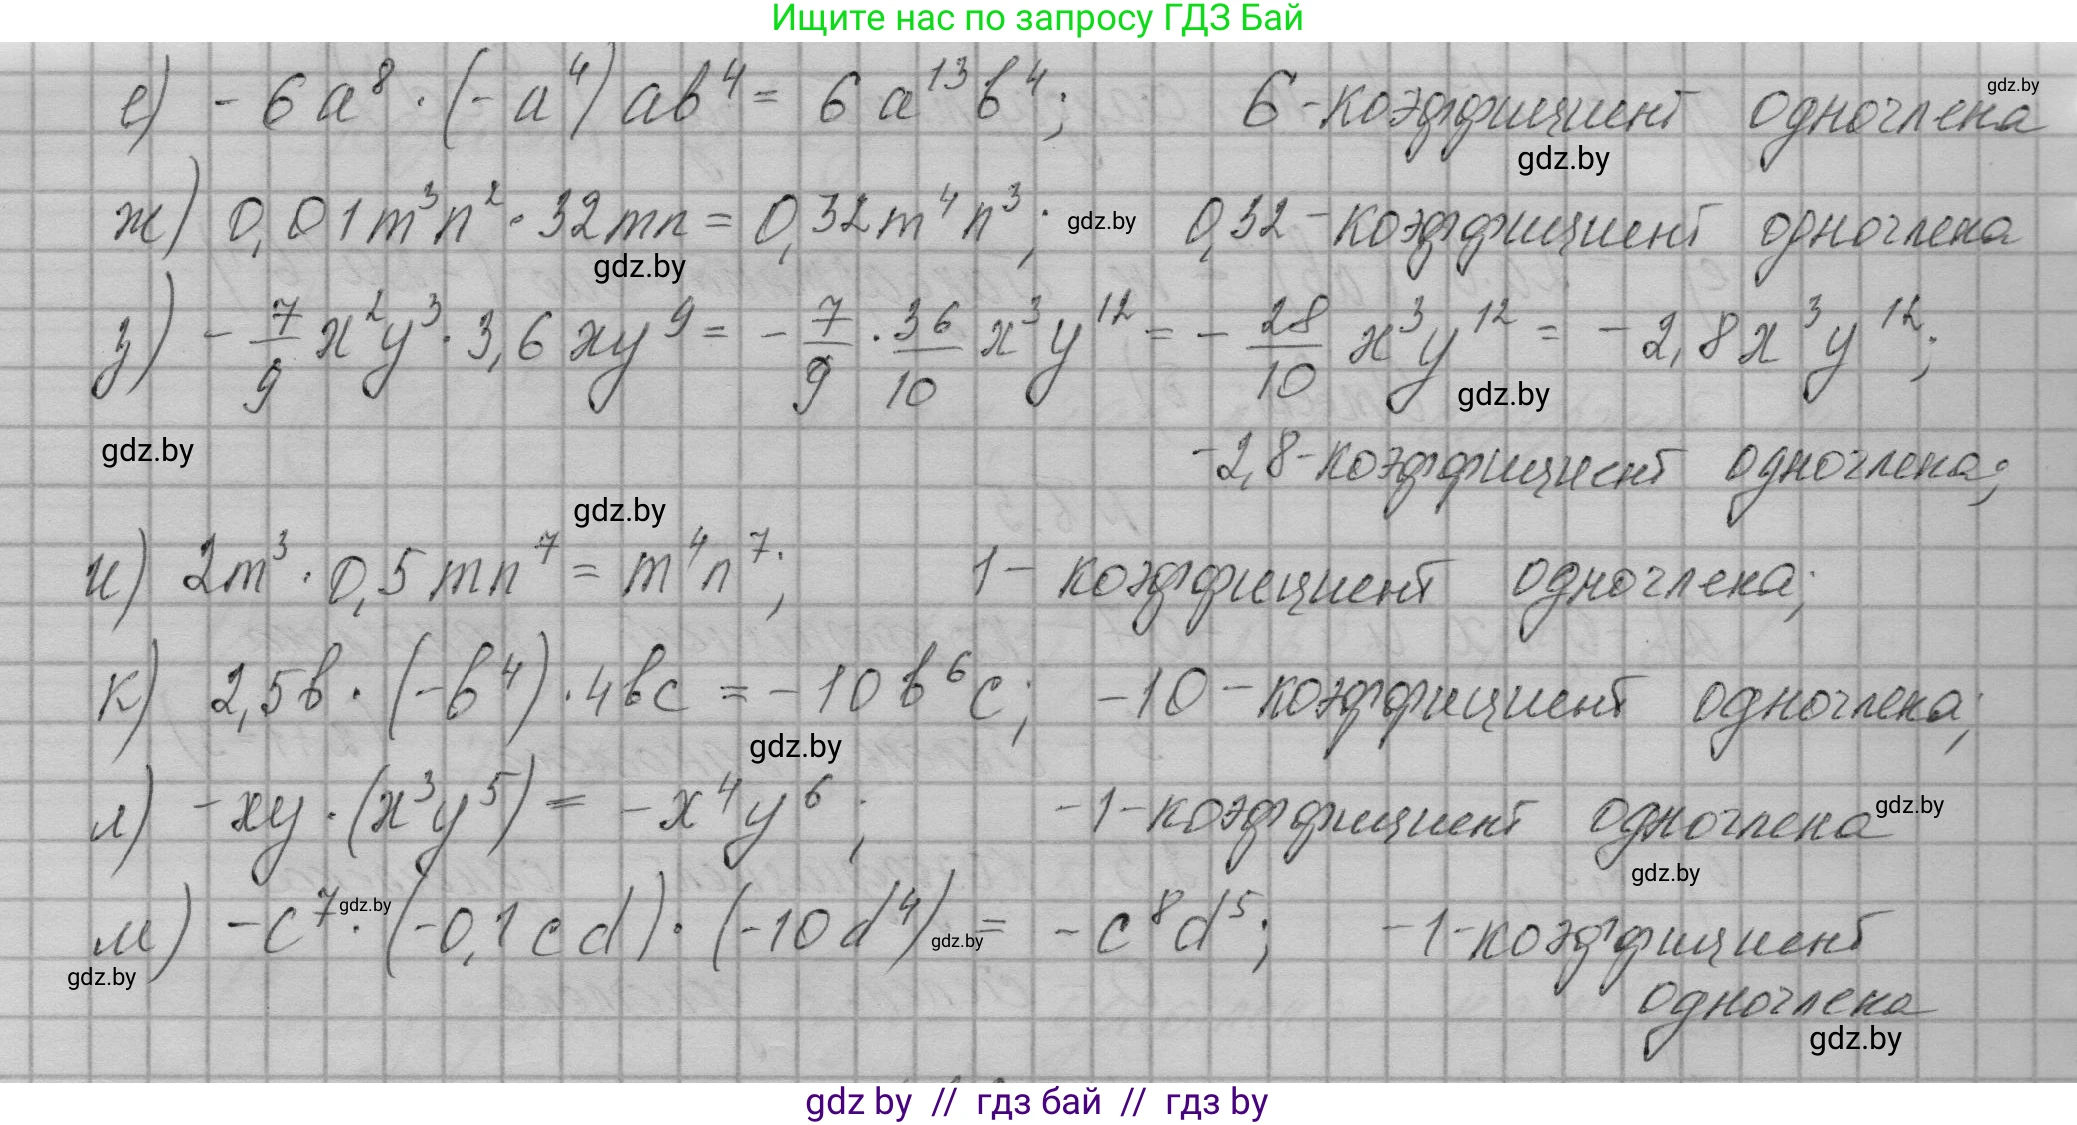 Ищите нас по запросу ГДЗ Бай
е) -6a⁸·(-a⁴)ab⁴ = 6a¹³b⁴; 6-коэффициент одночлена gdz.by
gdz.by
ж) 0,01m³n²·32mn = 0,32m⁴n³; gdz.by 0,32-коэффициент одночлена
gdz.by
з) -7/9 x²y³·3,6xy⁹ = -7/9·36/10 x³y¹² = -28/10 x³y¹² = -2,8x³y¹²;
gdz.by
gdz.by -2,8-коэффициент одночлена;
gdz.by
и) 2m³·0,5mn⁷ = m⁴n⁷; 1- коэффициент одночлена;
к) 2,5b·(-b⁴)·4bc = -10b⁶c; -10-коэффициент одночлена;
gdz.by
л) -xy·(x³y⁵) = -x⁴y⁶; -1-коэффициент одночлена gdz.by
gdz.by
м) -c⁷ gdz.by ·(-0,1cd)·(-10d⁴) gdz.by = -c⁸d⁵; -1-коэффициент
gdz.by
одночлена
gdz.by
gdz by // гдз бай // гдз by